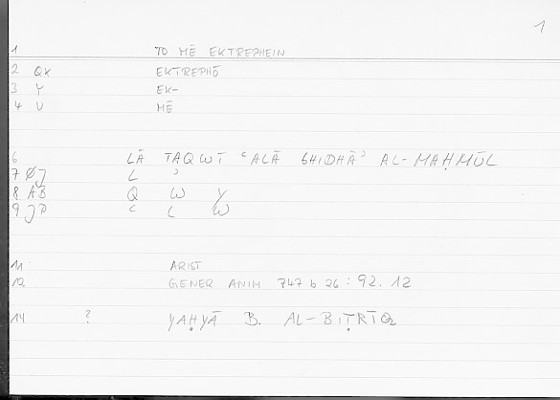 1
1 TO MĒ EKTREPHEIN
2 QK EKTREPHŌ
3 Y EK-
4 U MĒ
6 LĀ TAQWĪ ʿALĀ GHIDHĀʾ AL-MAḤMŪL
7 ØJ L ʾ
8 AB Q W Y
9 JD ʿ L W
11 ARIST
12 GENER ANIM 747 b 26 : 92.12
14 ? YAḤYĀ B. AL-BIṬRĪQ